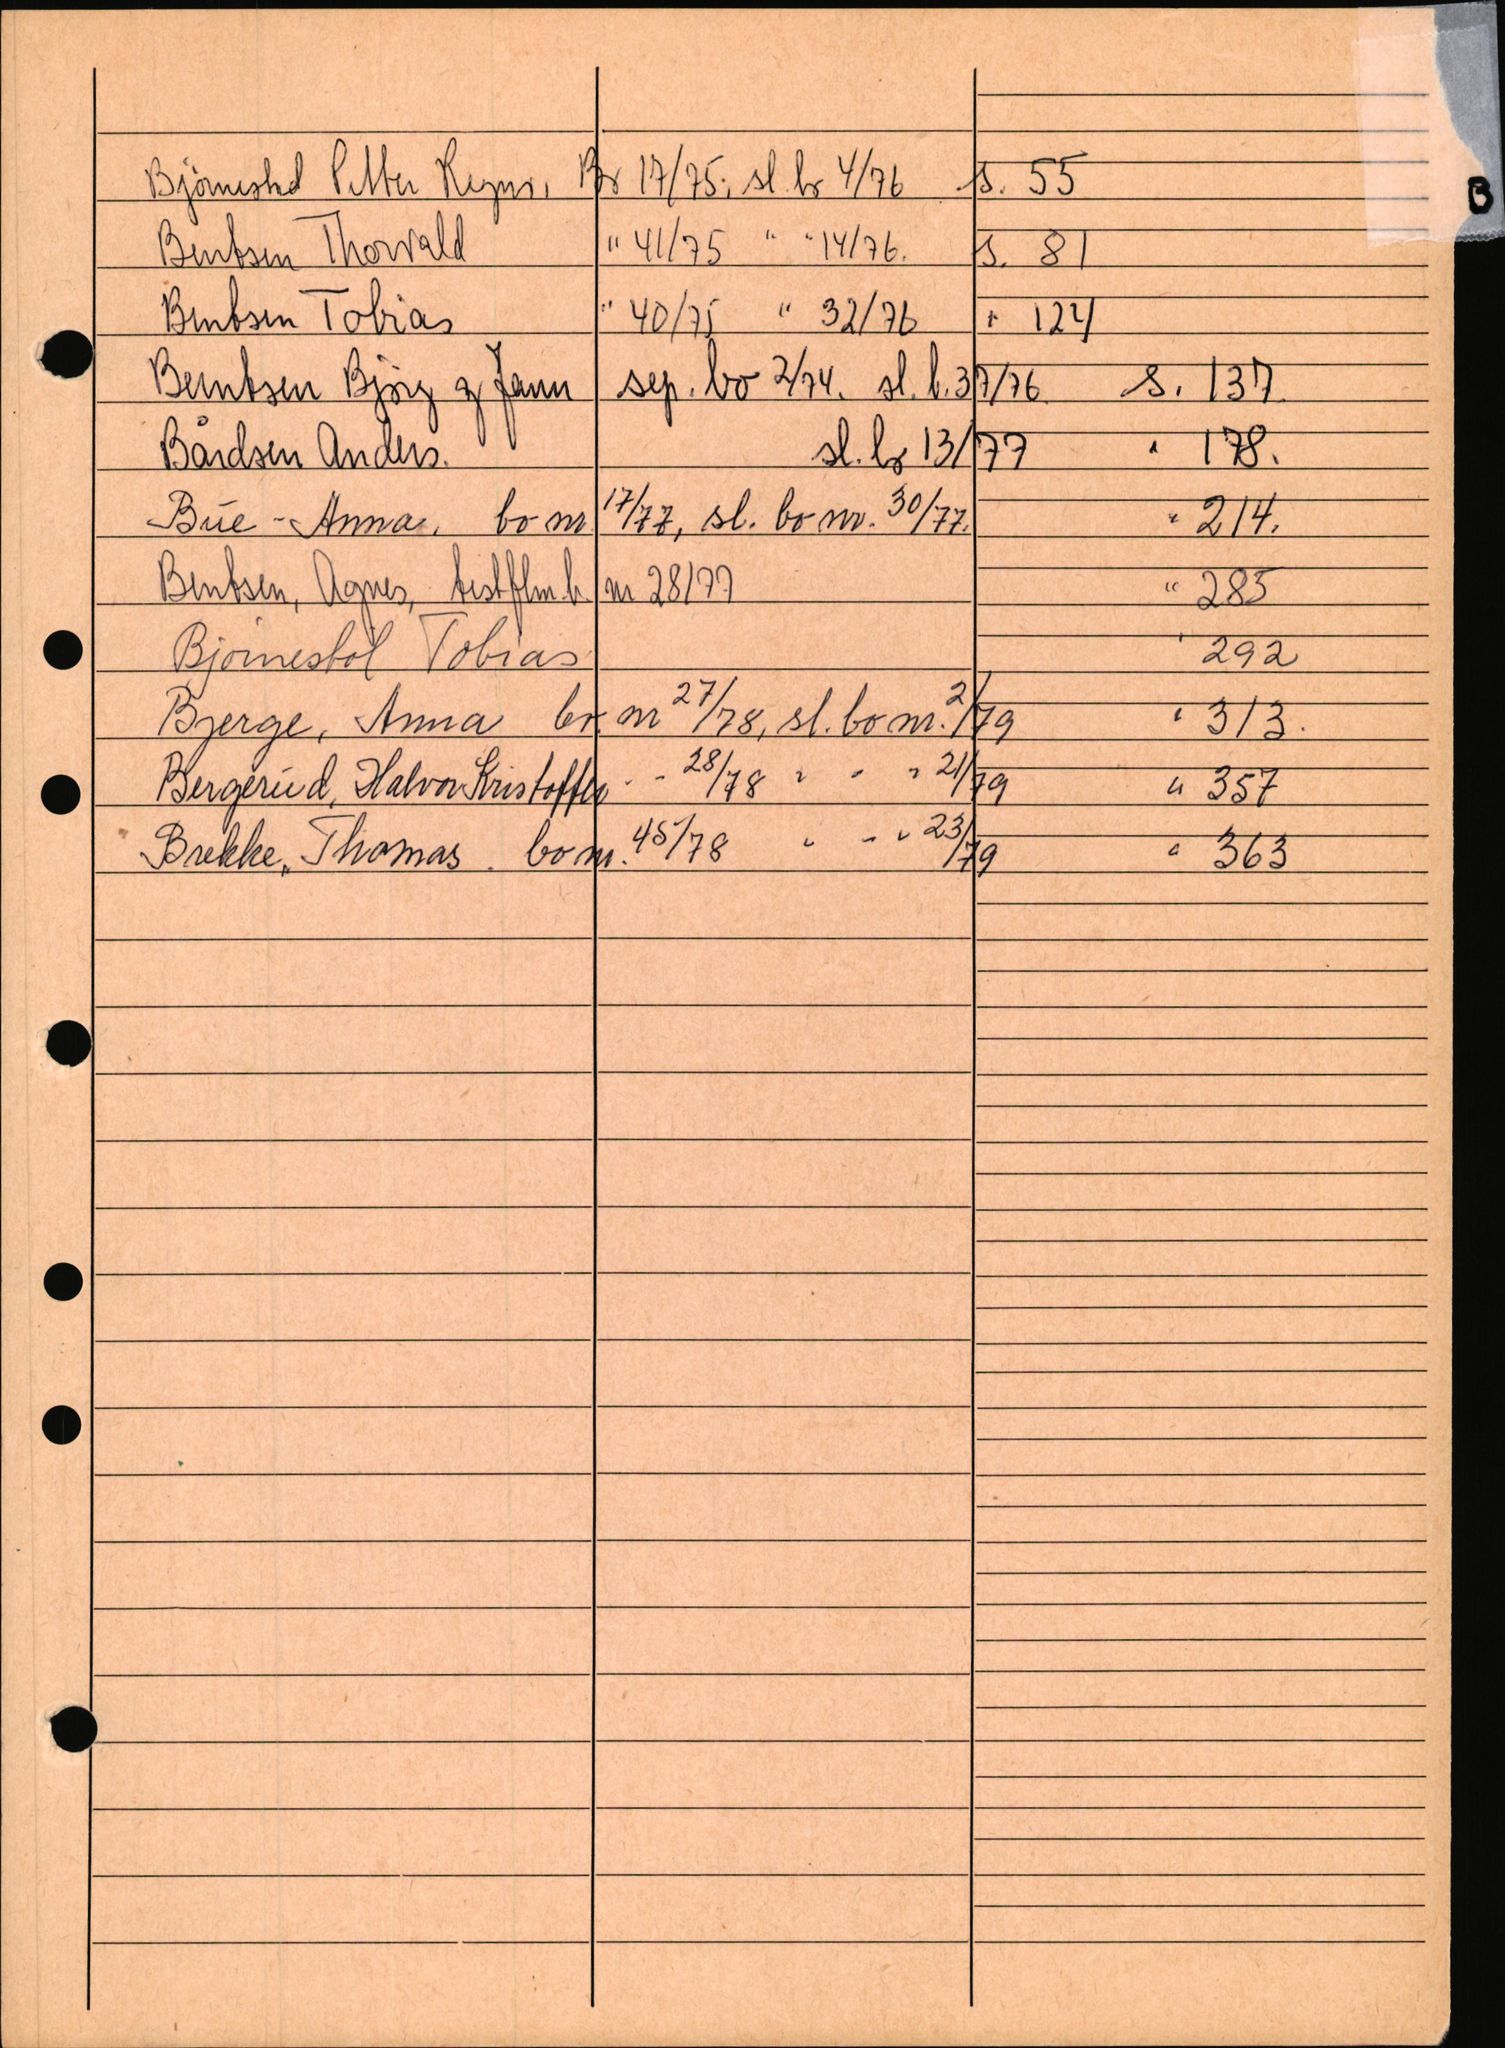 B
Björnestad Petter Regnv. Bo 17/75, sl. bo 4/76 s. 55
Berntsen Thorvald " 41/75 " " 14/76. s. 81
Berntsen Tobias " 40/75 " 32/76 " 124
Berntsen Björg og Jann sep. bo 2/74. sl. b. 37/76 s. 137
Bårdsen Anders. sl. bo 13/77 " 178.
Bue - Anna, bo nr. 17/77, sl. bo nr. 30/77. " 214.
Berntsen, Agnes, b. nr 28/77 " 285
Björnestöl Tobias " 292
Bjerge, Anna bo. nr 27/78, sl. bo nr. 2/79 " 313.
Bergerud, Halvor Kristoffer - - 28/78 " " " 21/79 " 357
Brekke, Thomas. bo nr. 45/78 " - " 23/79 " 363